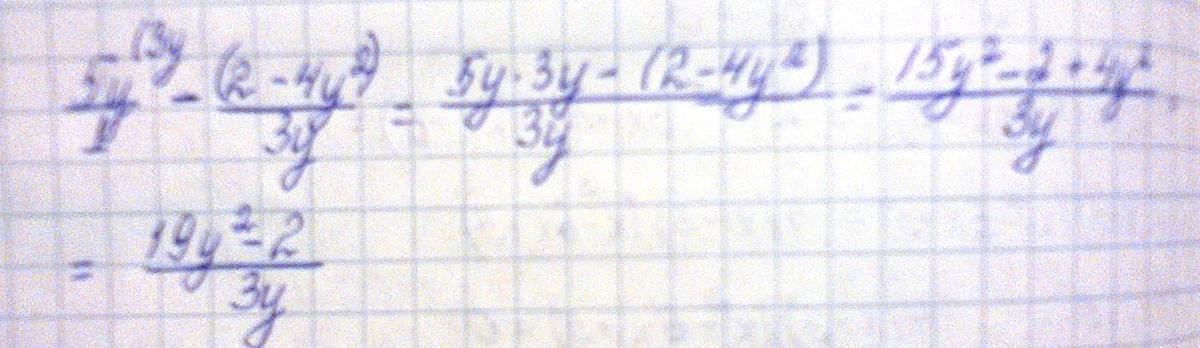 5y/1 (3y - (2 - 4y²)/3y = (5y · 3y - (2 - 4y²))/3y = (15y² - 2 + 4y²)/3y
= (19y² - 2)/3y